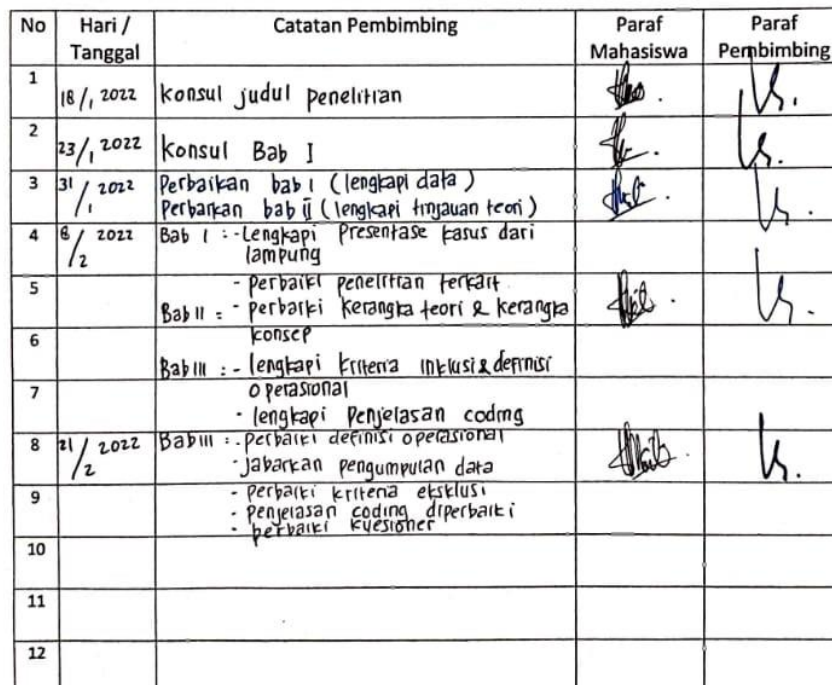 No Hari / Tanggal Catatan Pembimbing Paraf Mahasiswa Paraf Pembimbing
1 18/1 2022 Konsul judul penelitian
2 23/1 2022 Konsul Bab I
3 31/1 2022 Perbaikan bab I (lengkapi data)
Perbaikan bab ii (lengkapi tinjauan teori)
4 8/2 2022 Bab I : - Lengkapi Presentase kasus dari
lampung
5 - perbaiki penelitian terkait
Bab II : - perbaiki kerangka teori & kerangka
6 konsep
Bab III : - lengkapi kriteria inklusi & definisi
7 operasional
- lengkapi Penjelasan coding
8 21/2 2022 Bab III : - perbaiki definisi operasional
- jabarkan pengumpulan data
9 - perbaiki kriteria eksklusi
- Penjelasan coding diperbaiki
- perbaiki kuesioner
10
11
12